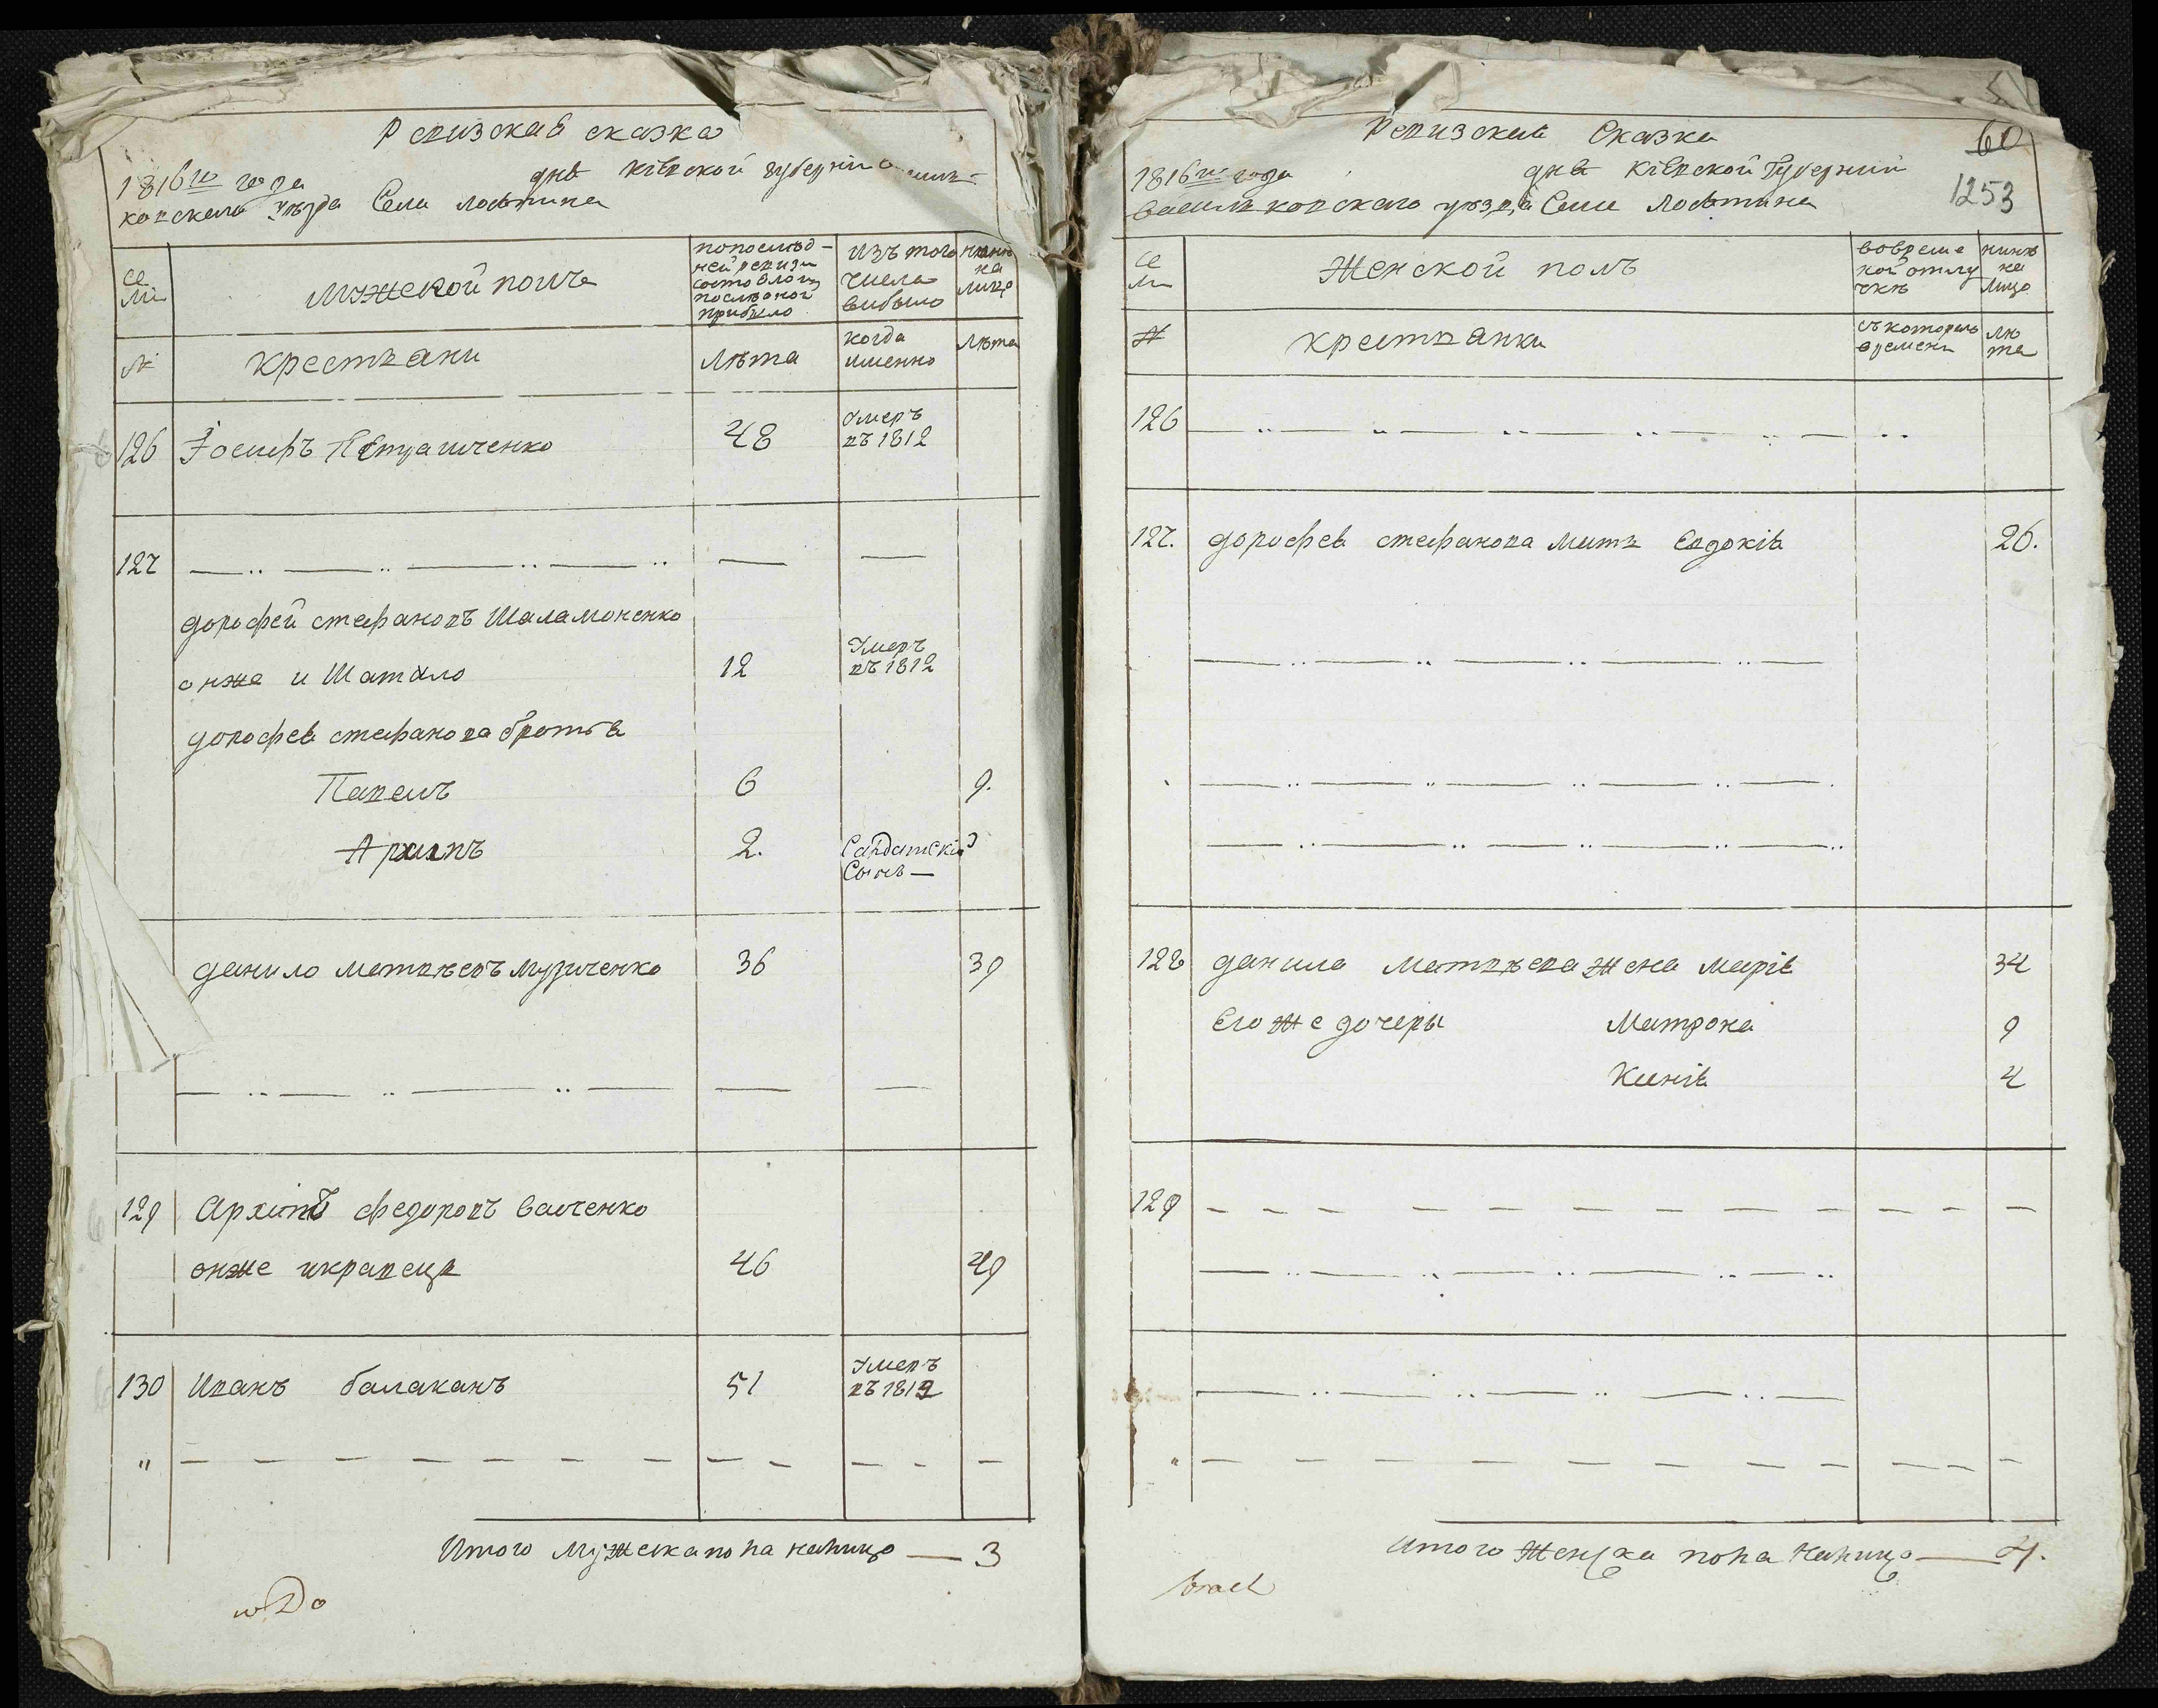 Ревизская сказка
1816го года дня Кіевской губерніи
ковскаго уезда Села Лосятина
се
мьи
мужеской полъ
попослѣд-
ней ревизіи
состояло и
послѣ оной
прибыло
изъ того
числа
выбыло
нынѣ
на
лицо
№
крестьяни
лѣта
когда
именно
лѣта
126 Іосифъ Петрашченко 48 Умеръ
въ 1812
127 — .. — .. — .. — .. — —
дорофей стефановъ Шаламоненко
онже и Шатало 12 Умеръ
въ 1812
дорофея стефанова братья
Павелъ 6 9.
Архипъ 2. Салдатскій
Сынъ —
данило матвѣевъ Музиченко 36 39
— .. — .. — .. — — —
129 Архипъ федоровъ Валченко
онже икравецъ 46 49
130 Иванъ балаканъ 51 Умеръ
въ 1812
" — — — — — — — — — — — —
Итого мужеска пола налицо — 3
wDo
Ревизская Сказка
60
1816го года дня Кіевской Губерніи
Васильковскаго уѣзда Села Лосятина
1253
се
мьи
Женской полъ
вовреме
ной отлу
чкѣ
нинѣ
на
лицо
№
крестьянки
съ котораго
времени
лѣ
та
126 — .. — .. — .. — .. — .. — ..
127. дорофея стефанова мать Евдокія 26.
— .. — .. — .. — .. —
— .. — .. — .. — .. — .
— .. — .. — .. — .. — ..
128 данила Матвѣева жена марія 34
Егоже дочеры Матрона 9
Ксенія 4
129 — — — — — — — — — — — — —
— .. — .. — .. — .. — ..
— .. — .. — .. — .. —
" — — — — — — — — — — — —
Итого женска пола налицо — 4.